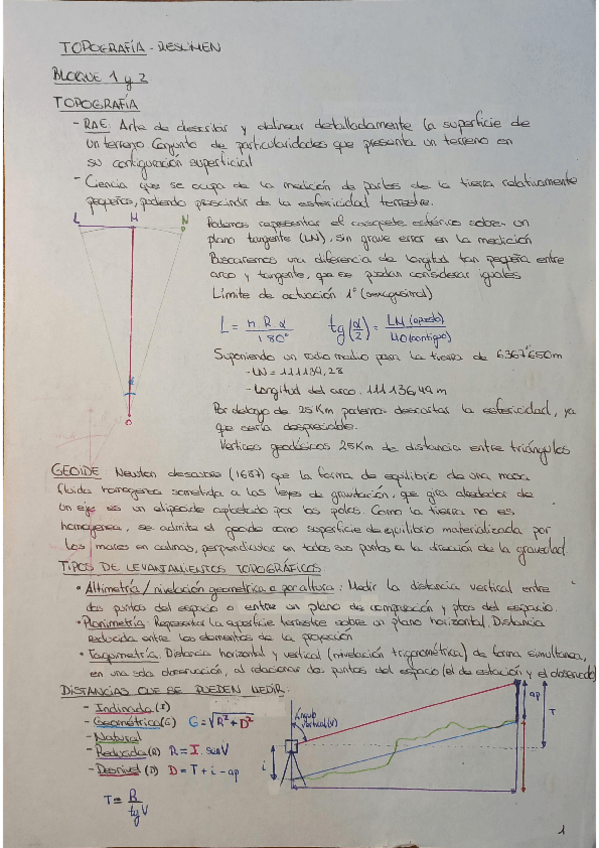 TOPOGRAFÍA - RESUMEN
BLOQUE 1 y 2
TOPOGRAFÍA
- RAE: Arte de describir y delinear detalladamente la superficie de
un terreno. Conjunto de particularidades que presenta un terreno en
su configuración superficial
- Ciencia que se ocupa de la medición de partes de la tierra relativamente
pequeñas, pudiendo prescindir de la esfericidad terrestre.
L H N
Podemos representar el casquete esférico sobre un
plano tangente (LN), sin grave error en la medición
Buscaremos una diferencia de longitud tan pequeña entre
arco y tangente, que se puedan considerar iguales
Límite de actuación 1° (sexagesimal)
L = π.R.α / 180° tg(α/2) = LH (opuesto) / HO (contiguo)
Suponiendo un radio medio para la tierra de 6367'650m
- LN = 111139,28
- Longitud del arco. 111136,49 m
α
Por debajo de 25 Km podemos descartar la esfericidad, ya
O
que sería despreciable.
Vértices geodésicos 25Km de distancia entre triángulos
GEOIDE Newton descubre (1687) que la forma de equilibrio de una masa
fluida homogenea sometida a las leyes de gravitación, que gira alrededor de
un eje es un elipsoide aplastado por los polos. Como la tierra no es
homogenea, se admite el geoide como superficie de equilibrio materializada por
los mares en calmas, perpendicular en todos sus puntos a la dirección de la gravedad.
TIPOS DE LEVANTAMIENTOS TOPOGRÁFICOS
• Altimetría / nivelación geometrica o por altura: Medir la distancia vertical entre
dos puntos del espacio o entre un plano de comparación y ptos del espacio.
• Planimetría: Representar la superficie terrestre sobre un plano horizontal. Distancia
reducida entre los elementos de la proyección
• Taquimetría. Distancia horizontal y vertical (nivelación trigonométrica) de forma simultanea,
en una sola observación, al relacionar dos puntos del espacio (el de estación y el observado)
DISTANCIAS QUE SE PUEDEN MEDIR:
- Inclinada (I)
- Geométrica (G) G = √R² + D²
- Natural
- Reducida (R) R = I. senV
- Desnivel (D) D = T + i - ap
T = R / tgV
Ángulo
vertical (V)
i
ap
T
1